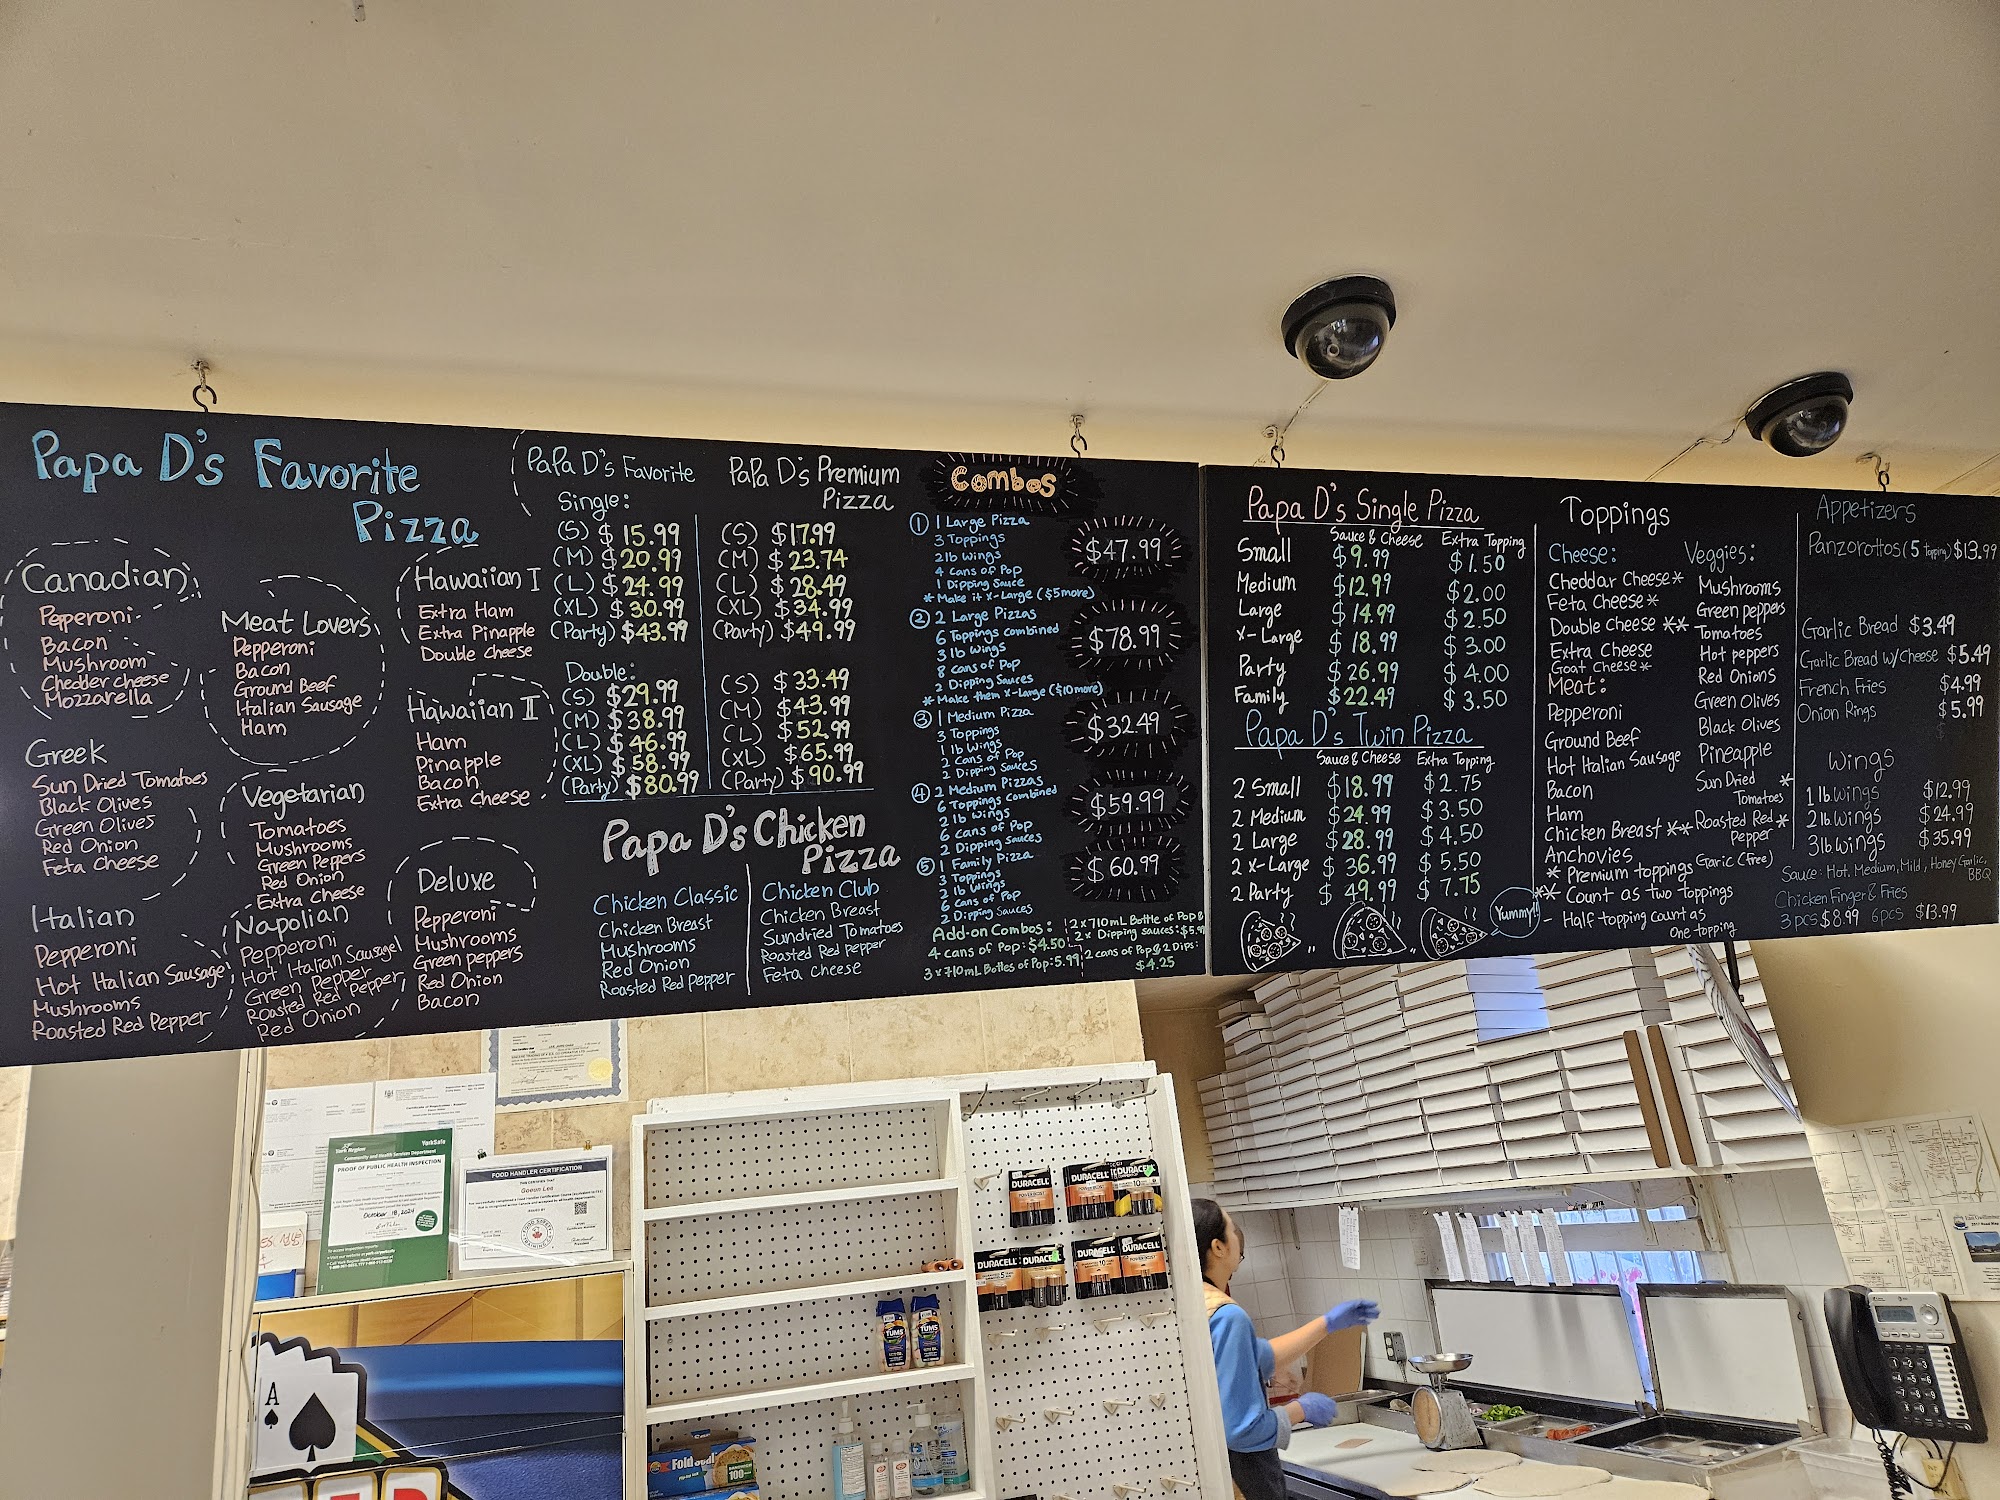 Papa D's Favorite
Pizza
Canadian
Peperoni
Bacon
Mushroom
Chedder cheese
Mozzarella
Greek
Sun Dried Tomatoes
Black Olives
Green Olives
Red Onion
Feta Cheese
Italian
Pepperoni
Hot Italian Sausage
Mushrooms
Roasted Red Pepper
Meat Lovers
Pepperoni
Bacon
Ground Beef
Italian Sausage
Ham
Vegetarian
Tomatoes
Mushrooms
Green Peppers
Red Onion
Extra Cheese
Napolian
Pepperoni
Hot Italian Sausage
Green Pepper
Roasted Red Pepper
Red Onion
Hawaiian I
Extra Ham
Extra Pinapple
Double Cheese
Hawaiian II
Ham
Pinapple
Bacon
Extra Cheese
Deluxe
Pepperoni
Mushrooms
Green peppers
Red Onion
Bacon
Papa D's Favorite
Single:
(S) $15.99
(M) $20.99
(L) $24.99
(XL) $30.99
(Party) $43.99
Double:
(S) $29.99
(M) $38.99
(L) $46.99
(XL) $58.99
(Party) $80.99
Papa D's Premium
Pizza
(S) $17.99
(M) $23.74
(L) $28.49
(XL) $34.99
(Party) $49.99
(S) $33.49
(M) $43.99
(L) $52.99
(XL) $65.99
(Party) $90.99
Papa D's Chicken
Pizza
Chicken Classic
Chicken Breast
Mushrooms
Red Onion
Roasted Red Pepper
Chicken Club
Chicken Breast
Sundried Tomatoes
Roasted Red Pepper
Feta Cheese
Combos
① 1 Large Pizza
3 Toppings
2lb Wings
4 cans of Pop
1 Dipping Sauce
* Make it x-Large ($5more)
$47.99
② 2 Large Pizzas
6 Toppings combined
3 lb Wings
8 cans of Pop
2 Dipping Sauces
* Make them x-Large ($10more)
$78.99
③ 1 Medium Pizza
3 Toppings
1 lb Wings
2 Cans of Pop
2 Dipping Sauces
$32.49
④ 2 Medium Pizzas
6 Toppings Combined
2 lb Wings
6 cans of Pop
2 Dipping Sauces
$59.99
⑤ 1 Family Pizza
3 Toppings
2 lb Wings
6 cans of Pop
2 Dipping Sauces
$60.99
Add-on Combos:
4 cans of Pop: $4.50
3 x 710mL Bottles of Pop: 5.99
2 x 710mL Bottle of Pop &
2 x Dipping Sauces: $5.99
2 cans of Pop & 2 Dips:
$4.25
Papa D's Single Pizza
Sauce & Cheese Extra Topping
Small $9.99 $1.50
Medium $12.99 $2.00
Large $14.99 $2.50
x-Large $18.99 $3.00
Party $26.99 $4.00
Family $22.49 $3.50
Papa D's Twin Pizza
Sauce & Cheese Extra Topping
2 Small $18.99 $2.75
2 Medium $24.99 $3.50
2 Large $28.99 $4.50
2 x-Large $36.99 $5.50
2 Party $49.99 $7.75
Yummy!!
Toppings
Cheese:
Cheddar Cheese*
Feta Cheese*
Double Cheese **
Extra Cheese
Goat Cheese*
Meat:
Pepperoni
Ground Beef
Hot Italian Sausage
Bacon
Ham
Chicken Breast **
Anchovies
Veggies:
Mushrooms
Green peppers
Tomatoes
Hot peppers
Red Onions
Green Olives
Black Olives
Pineapple
Sun Dried *
Tomatoes
Roasted Red *
Pepper
Garic (Free)
* Premium toppings
** Count as Two Toppings
- Half topping count as
One topping
Appetizers
Panzorottos (5 Topping) $13.99
Garlic Bread $3.49
Garlic Bread w/Cheese $5.49
French Fries $4.99
Onion Rings $5.99
Wings
1 lb. Wings $12.99
2 lb. Wings $24.99
3lb Wings $35.99
Sauce: Hot, Medium, Mild, Honey Garlic,
BBQ
Chicken Finger & Fries
3 pcs $8.99 6 pcs $13.99
York Region
YorkSafe
Community and Health Services Department
PROOF OF PUBLIC HEALTH INSPECTION
October 18, 2024
FOOD HANDLER CERTIFICATION
Goeun Lee
DURACELL
DURACELL
DURACELL
DURACELL
DURACELL
DURACELL
DURACELL
TUMS
TUMS
A